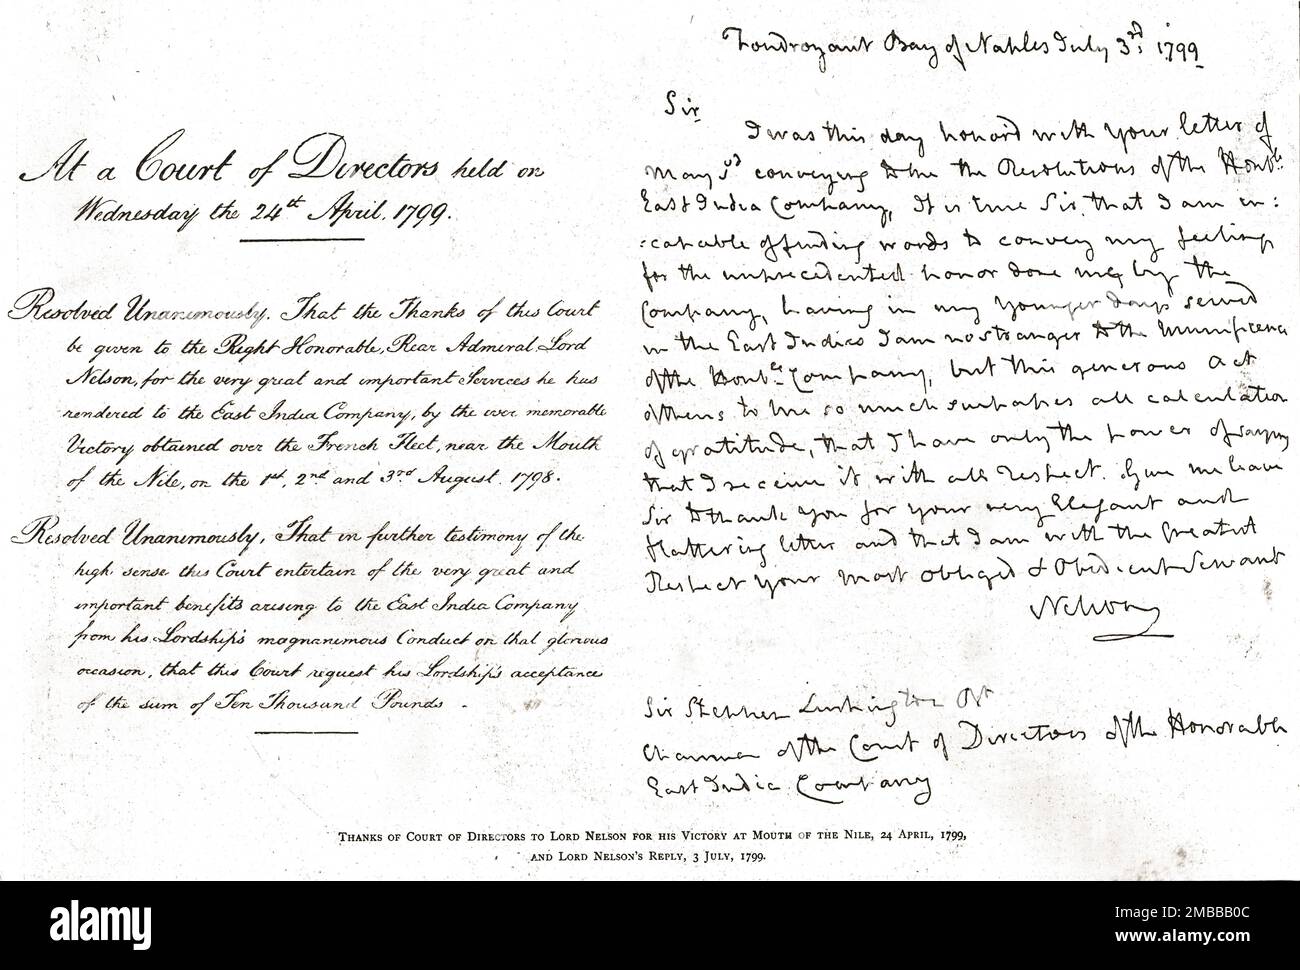 At a Court of Directors held on
Wednesday the 24th April, 1799.
Resolved Unanimously, That the Thanks of this Court
be given to the Right Honorable, Rear Admiral Lord
Nelson, for the very great and important Services he has
rendered to the East India Company, by the ever memorable
Victory obtained over the French Fleet, near the Mouth
of the Nile, on the 1st, 2nd and 3rd August, 1798.
Resolved Unanimously, That in further testimony of the
high sense this Court entertain of the very great and
important benefits arising to the East India Company
from his Lordship's magnanimous Conduct on that glorious
occasion, that this Court request his Lordship's acceptance
of the sum of Ten Thousand Pounds.
Foudroyant Bay of Naples July 3rd, 1799
Sir
I was this day honord with your letter of
May conveying to me the Resolutions of the Honble
East India Company, It is true Sir that I am in:
:capable of finding words to convey my feelings
for the unprecedented honor done me by the
Company, having in my younger days served
in the East Indies I am no stranger to the Munificence
of the Honble Company, but this generous act
of theirs to me so much surpasses all calculation
of gratitude, that I have only the power of saying
that I receive it with all respect. Give me leave
Sir to thank you for your very Elegant and
flattering letter and that I am with the Greatest
Respect your Most Obliged & Obedient Servant
Nelson
Sir Stephen Lushington Bt
Chairman of the Court of Directors of the Honorable
East India Company
Thanks of Court of Directors to Lord Nelson for his Victory at Mouth of the Nile, 24 April, 1799,
and Lord Nelson's Reply, 3 July, 1799.
alamy
Image ID: 2MBBB0C
www.alamy.com